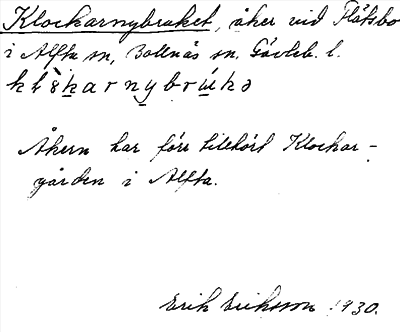 Klockarnybruket, åker vid Flåtsbo
i Alfta sn, Bollnäs sn, Gävleb. l.
klòkarnybrúkə
Åkern har förr tillhört Klockar-
gården i Alfta.
Erik Eriksson 1930.